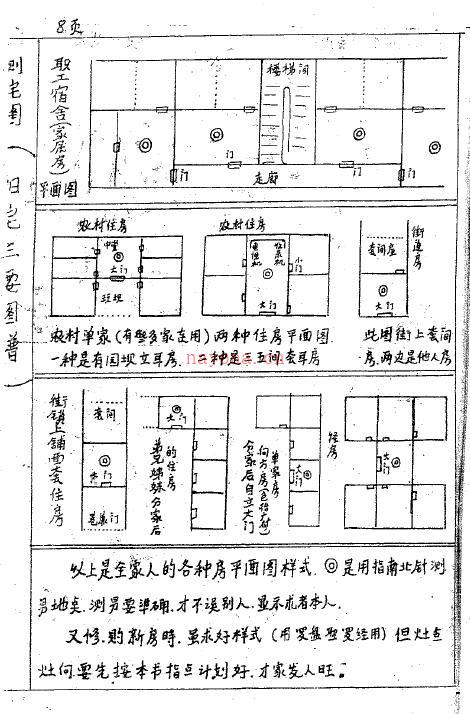 8页
测宅图(阳宅三要图普)
职工宿舍(家居房)
平面图
楼梯间
门
门
门
走廊
农村住房
农村住房
中堂
大门
大门
小门
街道房
套间屋
大门
农村单家(有些多家连用)两种住房平面图.
一种是有园坝立耳房. 二种是三五间套耳房
此图街上套间
房.两边是他人房
街镇上铺面套住房
套间
大门
大门
弟兄姊妹分家后
的住房
分家后自立大门
大门
住房
大门
以上是全家人的各种房平面图样式.◎是用指南北针测
量地点.测量要准确.才不误别人.显示求者本人.
又修.购新房时.虽求好样式(用罗盘翌罗经用)但灶台
灶向.要先按本书指点计划好.才家发人旺。